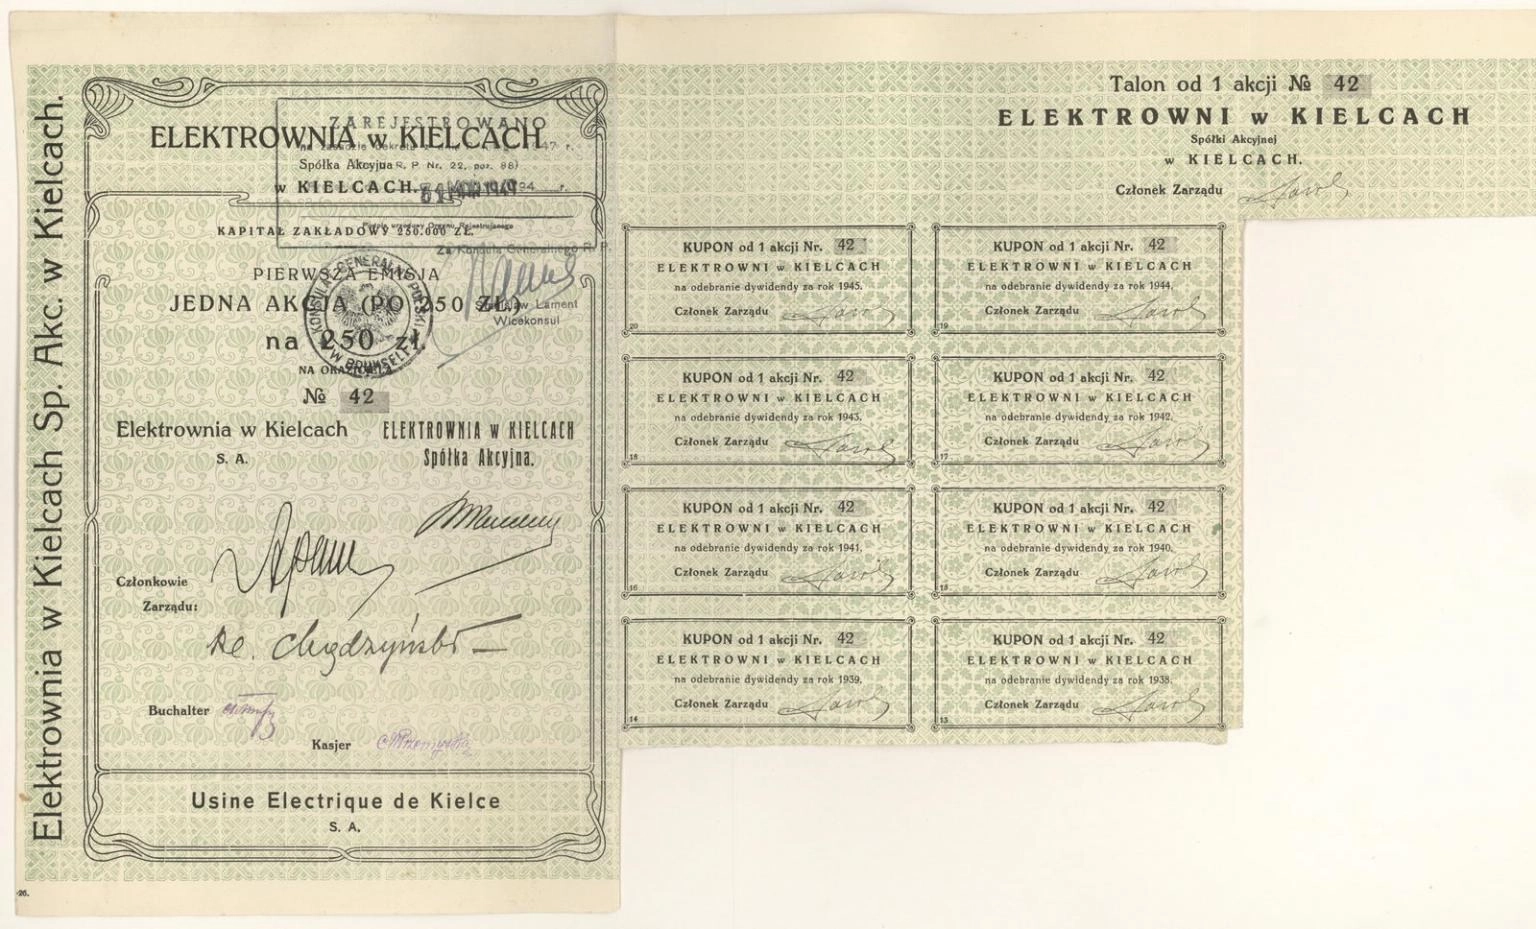 Elektrownia w Kielcach Sp. Akc. w Kielcach.
ELEKTROWNIA w KIELCACH
Spółka Akcyjna
w KIELCACH.
ZAREJESTROWANO
R. P. Nr. 22, poz. 88)
KAPITAŁ ZAKŁADOWY 250.000 ZŁ.
Za Konsula Generalnego R. P.
PIERWSZA EMISJA
JEDNA AKCJA (PO 250 ZŁ.)
Stanisław Lament
Wicekonsul
na 250 zł.
KONSULAT GENERALNY POLSKI
W BRUKSELI
NA OKAZICIELA
№ 42
Elektrownia w Kielcach
S. A.
ELEKTROWNIA W KIELCACH
Spółka Akcyjna.
Członkowie
Zarządu:
Buchalter
Kasjer
Usine Electrique de Kielce
S. A.
26.
Talon od 1 akcji № 42
ELEKTROWNI w KIELCACH
Spółki Akcyjnej
w KIELCACH.
Członek Zarządu
KUPON od 1 akcji Nr. 42
ELEKTROWNI w KIELCACH
na odebranie dywidendy za rok 1945.
Członek Zarządu
20
KUPON od 1 akcji Nr. 42
ELEKTROWNI w KIELCACH
na odebranie dywidendy za rok 1944.
Członek Zarządu
19
KUPON od 1 akcji Nr. 42
ELEKTROWNI w KIELCACH
na odebranie dywidendy za rok 1943.
Członek Zarządu
18
KUPON od 1 akcji Nr. 42
ELEKTROWNI w KIELCACH
na odebranie dywidendy za rok 1942.
Członek Zarządu
17
KUPON od 1 akcji Nr. 42
ELEKTROWNI w KIELCACH
na odebranie dywidendy za rok 1941.
Członek Zarządu
16
KUPON od 1 akcji Nr. 42
ELEKTROWNI w KIELCACH
na odebranie dywidendy za rok 1940.
Członek Zarządu
15
KUPON od 1 akcji Nr. 42
ELEKTROWNI w KIELCACH
na odebranie dywidendy za rok 1939.
Członek Zarządu
14
KUPON od 1 akcji Nr. 42
ELEKTROWNI w KIELCACH
na odebranie dywidendy za rok 1938.
Członek Zarządu
13